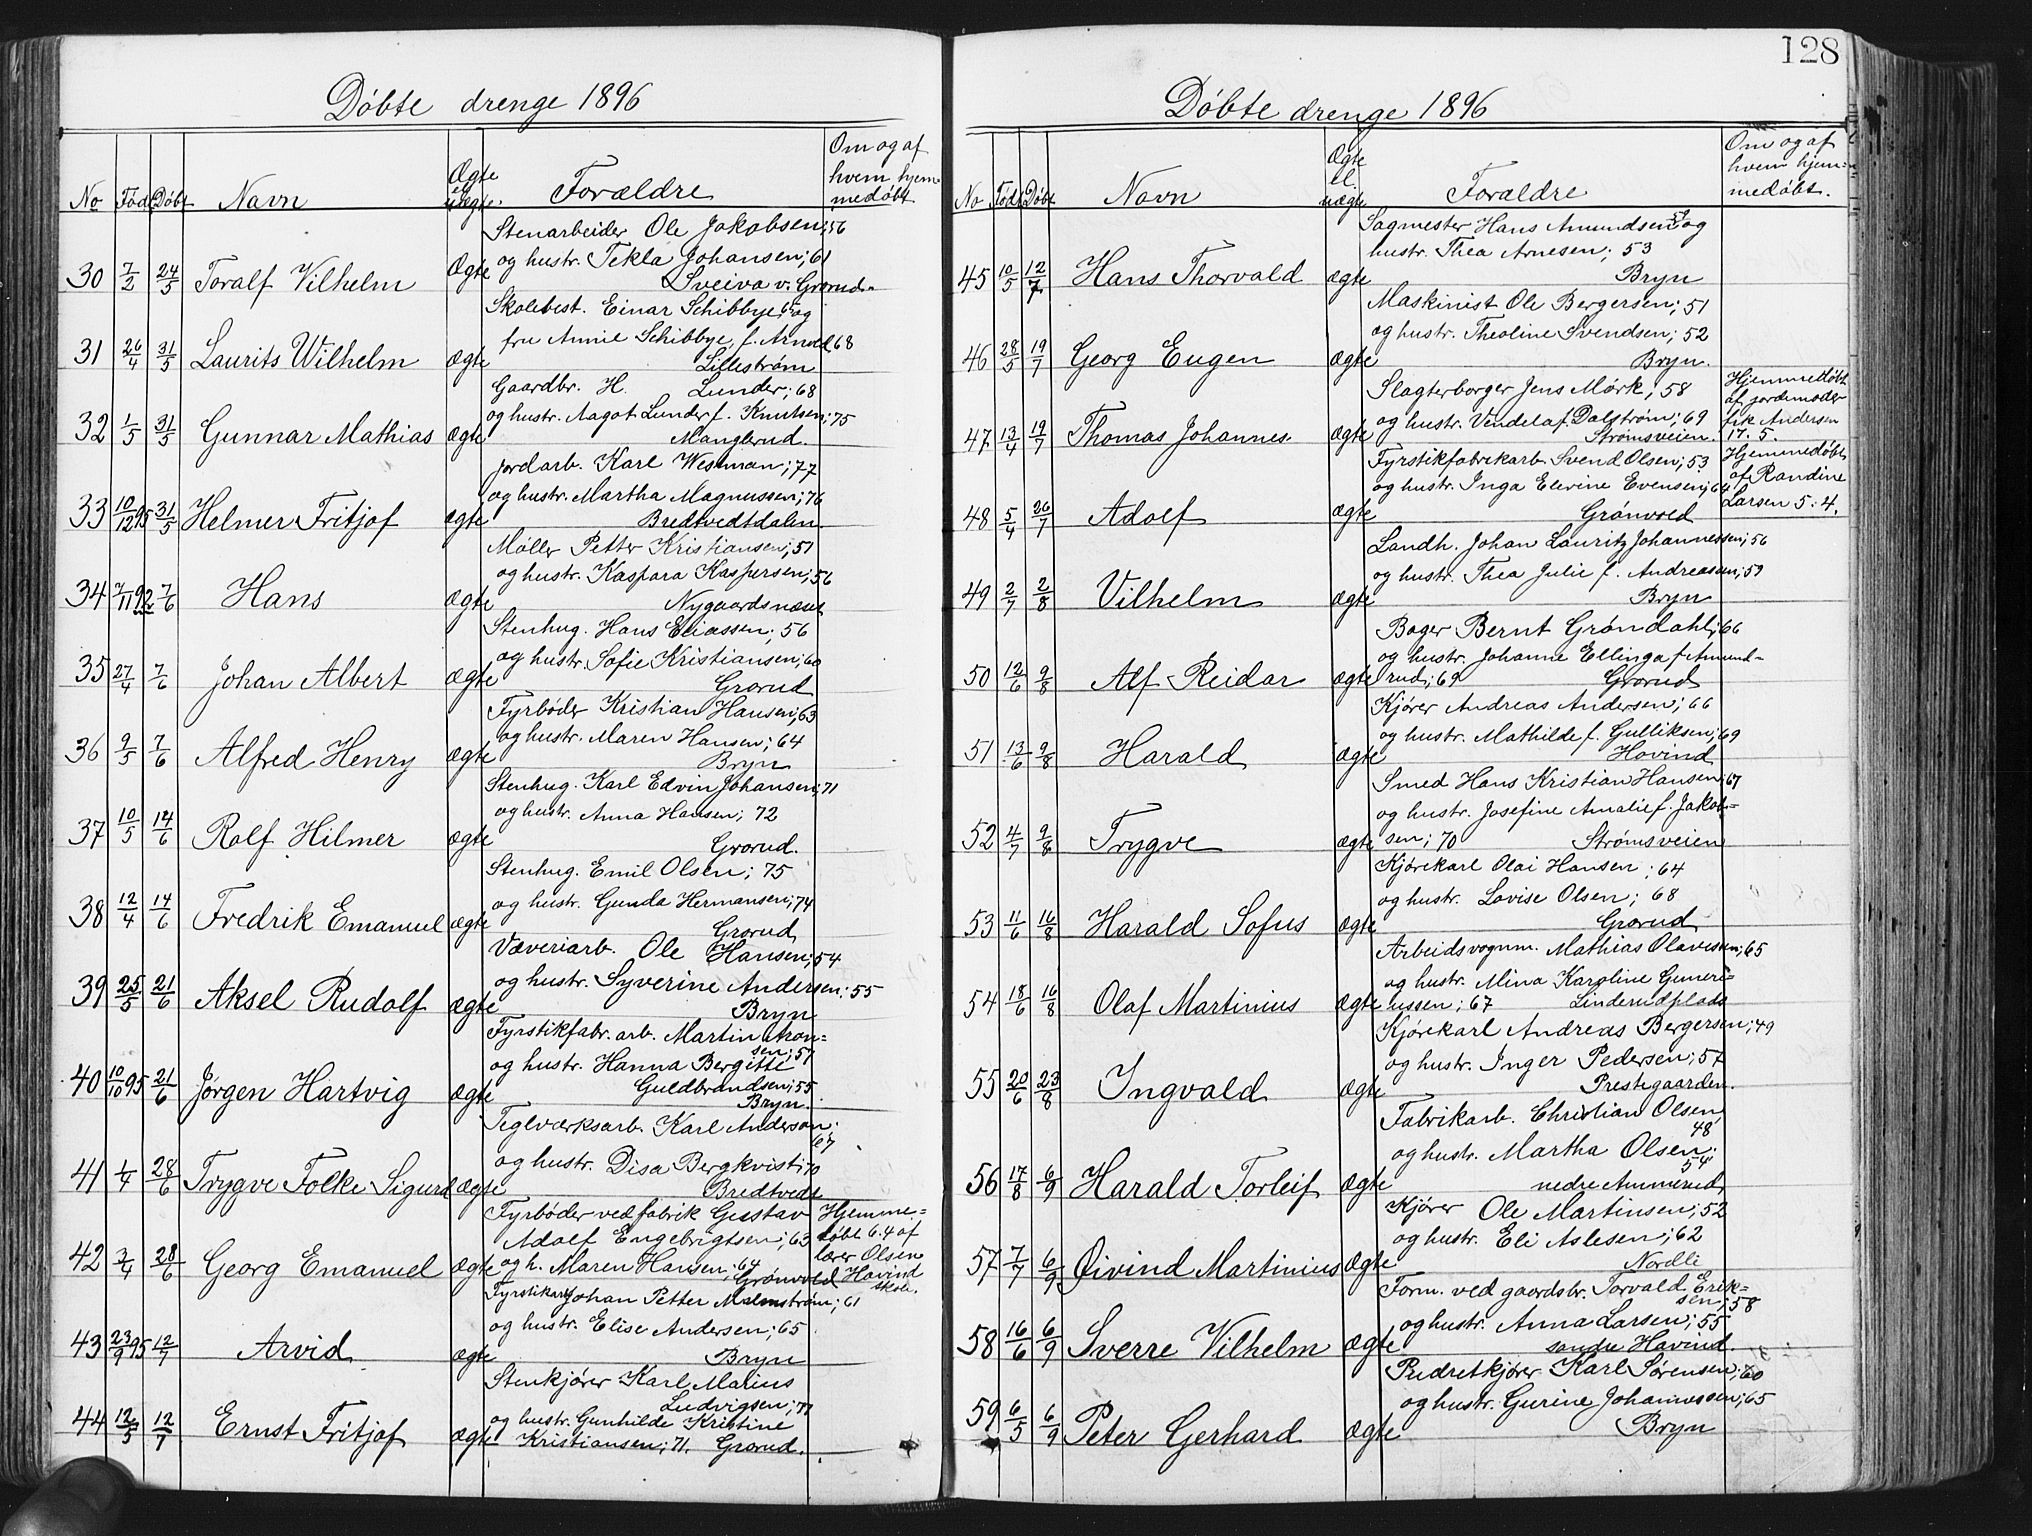 128
Døbte drenge 1896
No Fød. Døbt Navn Ægte el. uægte. Forældre Om og af hvem hjemmedøbt
Stenarbeider Ole Jakobsen; 56
og hustr. Tekla Johansen; 61
30 7/2 24/5 Toralf Vilhelm Ægte Sveiva v. Grorud.
Skolebest. Einar Schibbye og
fru Annie Schibbye, f. Arnold 68
31 26/4 31/5 Laurits Wilhelm ægte Lillestrøm
Gaardbr. H. Lunder; 68
og hustr. Aagot Lunder f. Knutsen; 75
32 1/5 31/5 Gunnar Mathias ægte Manglerud.
Jordarb. Karl Wesman; 77
og hustr. Martha Magnussen; 76
33 10/12 95 31/5 Helmer Fritjof ægte Bredtvedtdalen
Møller Petter Kristiansen; 51
og hustr. Kaspara Kaspersen; 56
34 7/11 92 7/6 Hans ægte Nygaardsnæset
Stenhug. Hans Eliassen; 56
og hustr. Sofie Kristiansen; 60
35 27/4 7/6 Johan Albert ægte Grorud
Fyrbøder Kristian Hansen; 63
og hustr. Maren Hansen; 64
36 9/5 7/6 Alfred Henry ægte Bryn
Stenhug. Karl Edvin Johansen; 71
og hustr. Anna Hansen; 72
37 10/5 14/6 Rolf Hilmer ægte Grorud.
Stenhug. Emil Olsen; 75
og hustr. Gunda Hermansen; 74
38 12/4 14/6 Fredrik Emanuel ægte Grorud
Væveriarb. Ole Hansen; 54
og hustr. Syverine Andersen; 55
39 25/5 21/6 Aksel Rudolf ægte Bryn
Fyrstikfabr. arb. Martin
sen; 57
og hustr. Hanna Bergitte
Guldbrandsen; 55
40 10/10 95 21/6 Jørgen Hartvig ægte Bryn.
Teglværksarb. Karl Anderson;
67
og hustr. Disa Bergkvist; 70
41 1/4 28/6 Trygve Folke Sigurd ægte Bredtvedt
Fyrbøder ved fabrik Gustav Hjemme=
Adolf Engebrigtsen; 63 døbt 6.4 af
42 3/4 28/6 Georg Emanuel ægte og h. Maren Hansen; 64 lærer Olsen
Grønvold Hovind
skole.
Fyrstikarb. Johan Petter Malmstrøm; 61
og hustr. Elise Andersen; 65
43 23/9 95 12/7 Arvid ægte Bryn
Stenkjører Karl Marius
Ludvigsen; 71
og hustr. Gunhilde Kristine
44 12/5 12/7 Ernst Fritjof ægte Kristiansen; 71. Grorud.
Døbte drenge 1896
No Født Døbt Navn Ægte el. uægte Forældre Om og af hvem hjem=medøbt.
Sagmester Hans Amundsen og
hustr. Thea Arnesen; 53
45 10/5 12/7 Hans Thorvald ægte Bryn
Maskinist Ole Bergersen; 51
og hustr. Theoline Svendsen; 52
46 28/5 19/7 Georg Eugen ægte Bryn.
Slagterborger Jens Mörk; 58 Hjemmedøbt
og hustr. Vendela f. Dalstrøm; 69 af jordemoder
47 13/4 19/7 Thomas Johannes ægte Strømsveien. frk Andersen
17. 5.
Fyrstikfabrikarb. Svend Olsen; 53 Hjemmedøbt
og hustr. Inga Elevine Evensen; 64 af Randine
48 5/4 26/7 Adolf ægte Grønvold Larsen 5. 4.
Landh. Johan Lauritz Johannessen; 56
og hustr. Thea Julie f. Andreassen; 59
49 2/7 2/8 Vilhelm ægte Bryn
Bager Bernt Grøndahl; 66
og hustr. Johanne Ellinga f. Amund=
50 12/6 9/8 Alf Reidar ægte rud; 69 Grorud
Kjører Andreas Andersen; 66
og hustr. Mathilde f. Gulliksen; 69
51 13/6 9/8 Harald ægte Hovind
Smed Hans Kristian Hansen; 67
og hustr. Josefine Amalie f. Jakob=
52 4/7 9/8 Trygve ægte sen; 70 Strømsveien
Kjørekarl Olai Hansen; 64
og hustr. Lovise Olsen; 68
53 11/6 16/8 Harald Sofus ægte Grorud
Arbeidsvognm. Mathias Olavesen; 65
og hustr. Mina Karoline Guneri=
54 18/6 16/8 Olaf Martinius ægte ussen; 67 Linderudplads
Kjørekarl Andreas Bergersen; 49
og hustr. Inger Pedersen; 57
55 20/6 23/8 Ingvald ægte Prestegaarden.
Fabrikarb. Christian Olsen
48
og hustr. Martha Olsen;
54
56 17/8 6/9 Harald Torleif ægte nedre Ammerud
Kjører Ole Martinsen; 52
og hustr. Eli Aslesen; 62
57 7/7 6/9 Øivind Martinius ægte Nordli
Form. ved gaardsbr. Torvald Erik=
sen; 58
og hustr. Anna Larsen; 55
58 16/6 6/9 Sverre Vilhelm ægte søndre Hovind.
Pudretkjører Karl Sørensen; 60
og hustr. Gurine Johannessen; 65
59 6/5 6/9 Peter Gerhard ægte Bryn